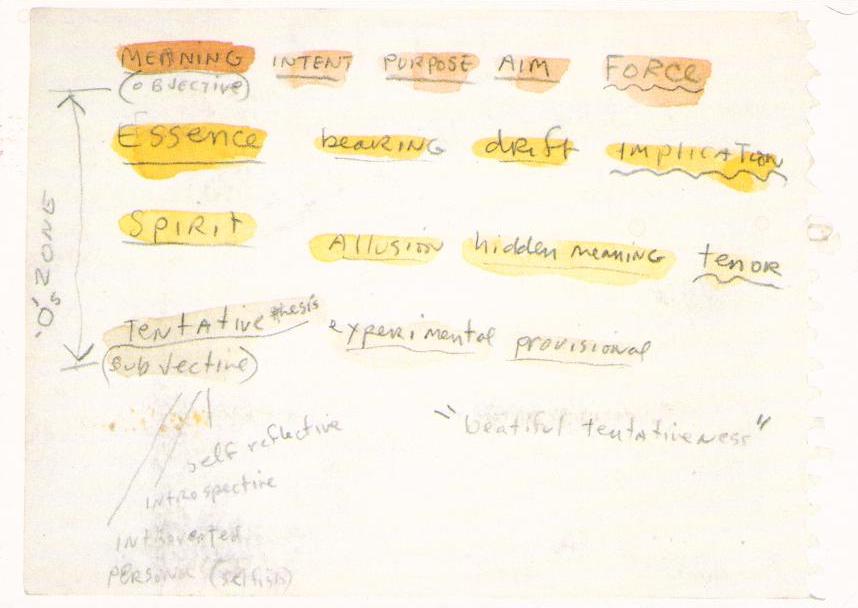 MEANING INTENT PURPOSE AIM FORCE
(OBJECTIVE)
Essence beaRING dRift IMPLICATION
SpiRit
Allusion hidden meaning tenOR
Tentative thesis experimental provisional
(subjective)
"O"s ZONE
"beatiful tentativeness"
self reflective
INtROspective
INtROverted
PERSONA (selfish)